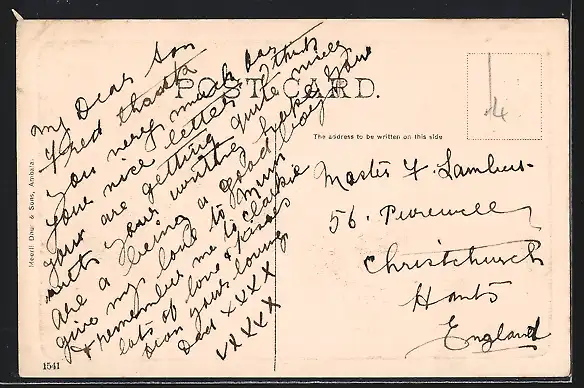 My Dear Son
Fred thank
you very much for
your nice letter I think
you are getting quite nicely
with your writing hope you
are a being a good boy
give my love to Mum
& remember me to Clarkie
lots of love & kisses
from your loving
Dad XXXX
VXXXX
POST CARD.
The address to be written on this side
Master F. Lambert
56. Purewell
Christchurch
Hants
England
Meerill Dhur & Sons, Ambala.
1541